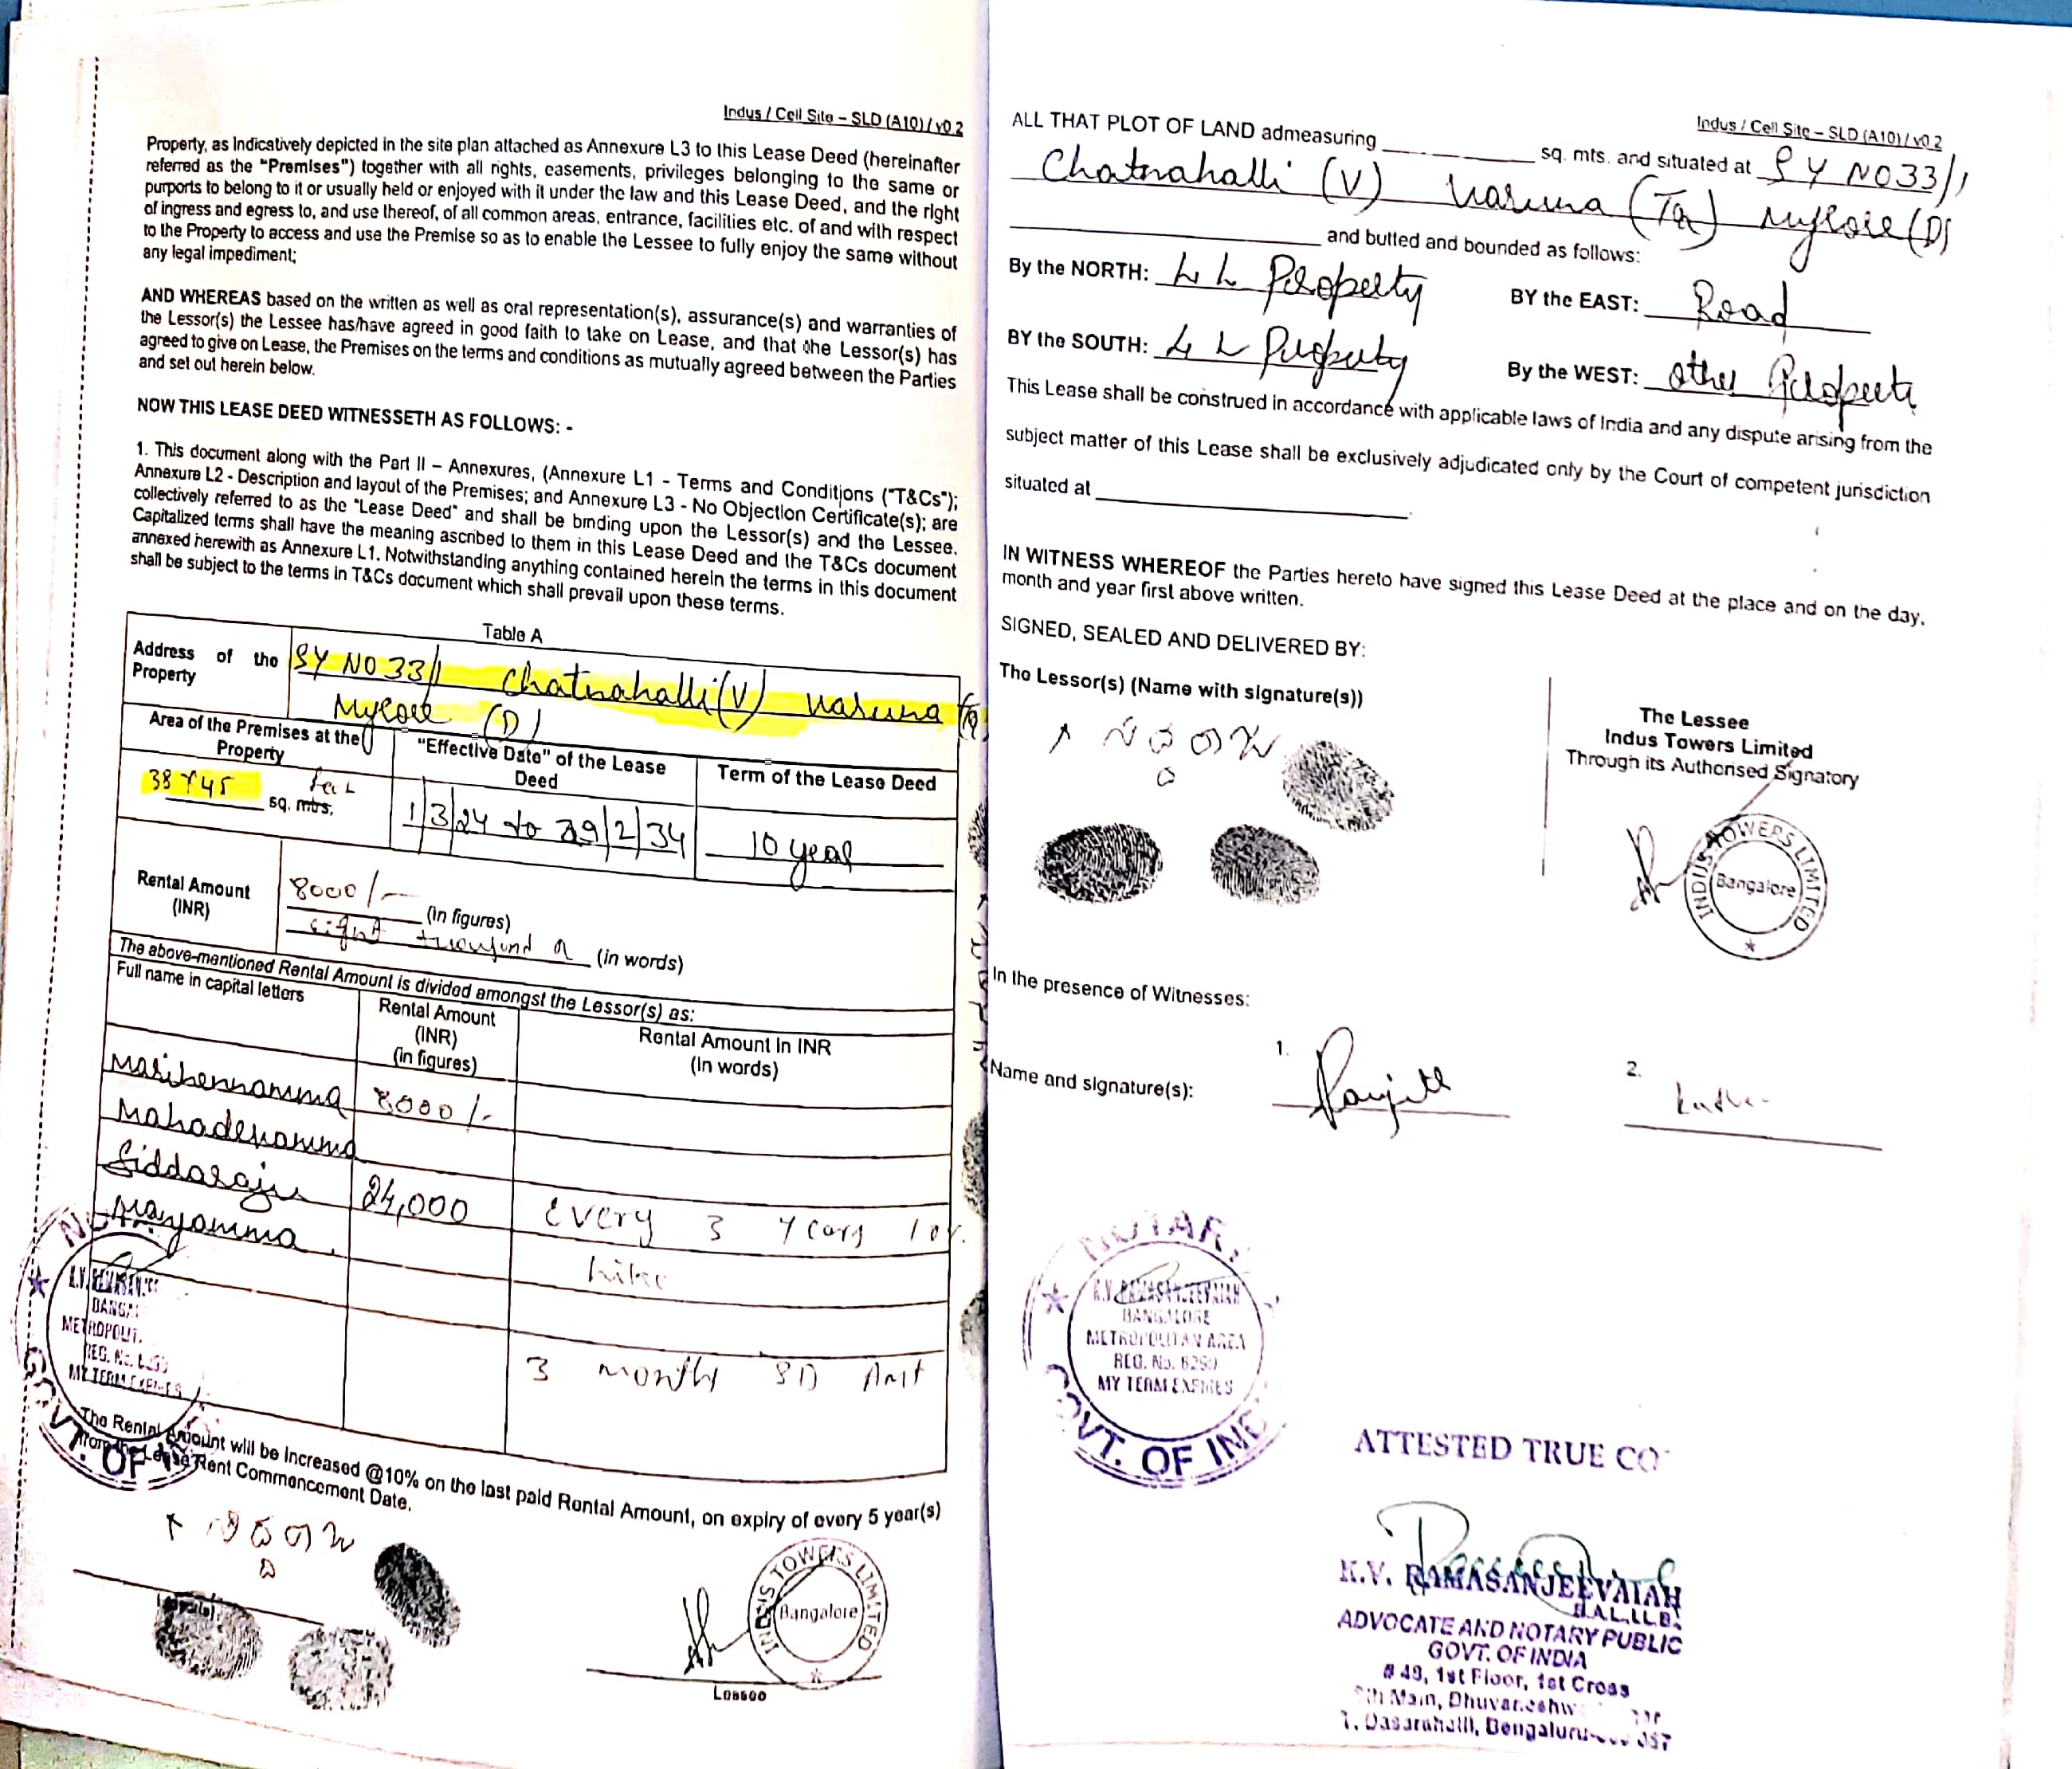 Indus / Cell Site – SLD (A10) / v0.2
Property, as Indicatively depicted in the site plan attached as Annexure L3 to this Lease Deed (hereinafter
referred as the "Premises") together with all rights, easements, privileges belonging to the same or
purports to belong to it or usually held or enjoyed with it under the law and this Lease Deed, and the right
of ingress and egress to, and use thereof, of all common areas, entrance, facilities etc. of and with respect
to the Property to access and use the Premise so as to enable the Lessee to fully enjoy the same without
any legal impediment;
AND WHEREAS based on the written as well as oral representation(s), assurance(s) and warranties of
the Lessor(s) the Lessee has/have agreed in good faith to take on Lease, and that the Lessor(s) has
agreed to give on Lease, the Premises on the terms and conditions as mutually agreed between the Parties
and set out herein below.
NOW THIS LEASE DEED WITNESSETH AS FOLLOWS: -
1. This document along with the Part II – Annexures, (Annexure L1 - Terms and Conditions ("T&Cs");
Annexure L2 - Description and layout of the Premises; and Annexure L3 - No Objection Certificate(s); are
collectively referred to as the "Lease Deed" and shall be binding upon the Lessor(s) and the Lessee.
Capitalized terms shall have the meaning ascribed to them in this Lease Deed and the T&Cs document
annexed herewith as Annexure L1. Notwithstanding anything contained herein the terms in this document
shall be subject to the terms in T&Cs document which shall prevail upon these terms.
Table A
Address of the Property
SY NO 33/1 Chatnahalli (V) Varuna (Ta)
Mysore (D)
Area of the Premises at the Property
"Effective Date" of the Lease Deed
Term of the Lease Deed
38 x 45 feet
sq. mtrs.
1/3/24 to 29/2/34
10 year
Rental Amount (INR)
8000/- (in figures)
eight thousand (in words)
The above-mentioned Rental Amount is divided amongst the Lessor(s) as:
Full name in capital letters
Rental Amount (INR) (in figures)
Rental Amount in INR (In words)
Marichennamma 8000/-
Mahadevamma
Siddaraju 24,000 Every 3 years 10%
Mayamma
hike
3 month SD Amt
The Rental Amount will be increased @10% on the last paid Rental Amount, on expiry of every 5 year(s)
from the Lease Rent Commencement Date.
INDUS TOWERS LIMITED
Bangalore
Lessee
Indus / Cell Site – SLD (A10) / v0.2
ALL THAT PLOT OF LAND admeasuring sq. mts. and situated at SY NO33/1
Chatnahalli (V) Varuna (Ta) Mysore (D)
and butted and bounded as follows:
By the NORTH: L L Property BY the EAST: Road
BY the SOUTH: L L Property By the WEST: other Property
This Lease shall be construed in accordance with applicable laws of India and any dispute arising from the
subject matter of this Lease shall be exclusively adjudicated only by the Court of competent jurisdiction
situated at
IN WITNESS WHEREOF the Parties hereto have signed this Lease Deed at the place and on the day,
month and year first above written.
SIGNED, SEALED AND DELIVERED BY:
The Lessor(s) (Name with signature(s))
The Lessee
Indus Towers Limited
Through its Authorised Signatory
INDUS TOWERS LIMITED
Bangalore
In the presence of Witnesses:
Name and signature(s):
1. Ranjith
2.
NOTARY
K.V. RAMASANJEEVAIAH
BANGALORE
METROPOLITAN AREA
REG. No.
MY TERM EXPIRES
GOVT. OF INDIA
ATTESTED TRUE CO
K.V. RAMASANJEEVAIAH
B.A.L.,LL.B.
ADVOCATE AND NOTARY PUBLIC
GOVT. OF INDIA
# 49, 1st Floor, 1st Cross
Main,
T. Dasarahalli, Bengaluru-